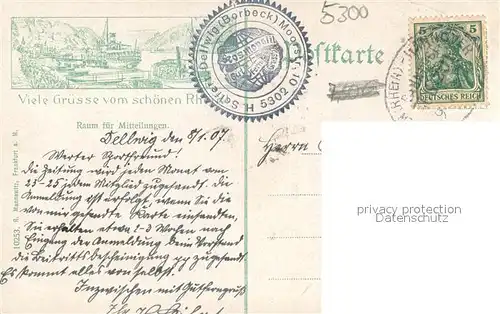 5300
Schreiber Dellwig (Borbeck) Moorstr. 10
H 5302
Kosmopolit
Postkarte
5
DEUTSCHES REICH
Viele Grüsse vom schönen Rh
Raum für Mitteilungen.
Dellwig den 8/1.07.
Herrn
Werter Sportfreund!
Die Zeitung wird jeden Monat am
23-25 jeden Mitglied zugesandt. Die
Anmeldung ist erfolgt, wenn Sie die
von mir gesandte Karte einsandten,
Sie erhalten etwa 2-3 Wochen nach
Eingang der Anmeldung beim Vorstand
die Beitrittsbescheinigung pp zugesandt.
Es kommt alles von selbst.
Inzwischen mit Gutferngruß
privacy protection
Datenschutz
10253. Frankfurt a. M.